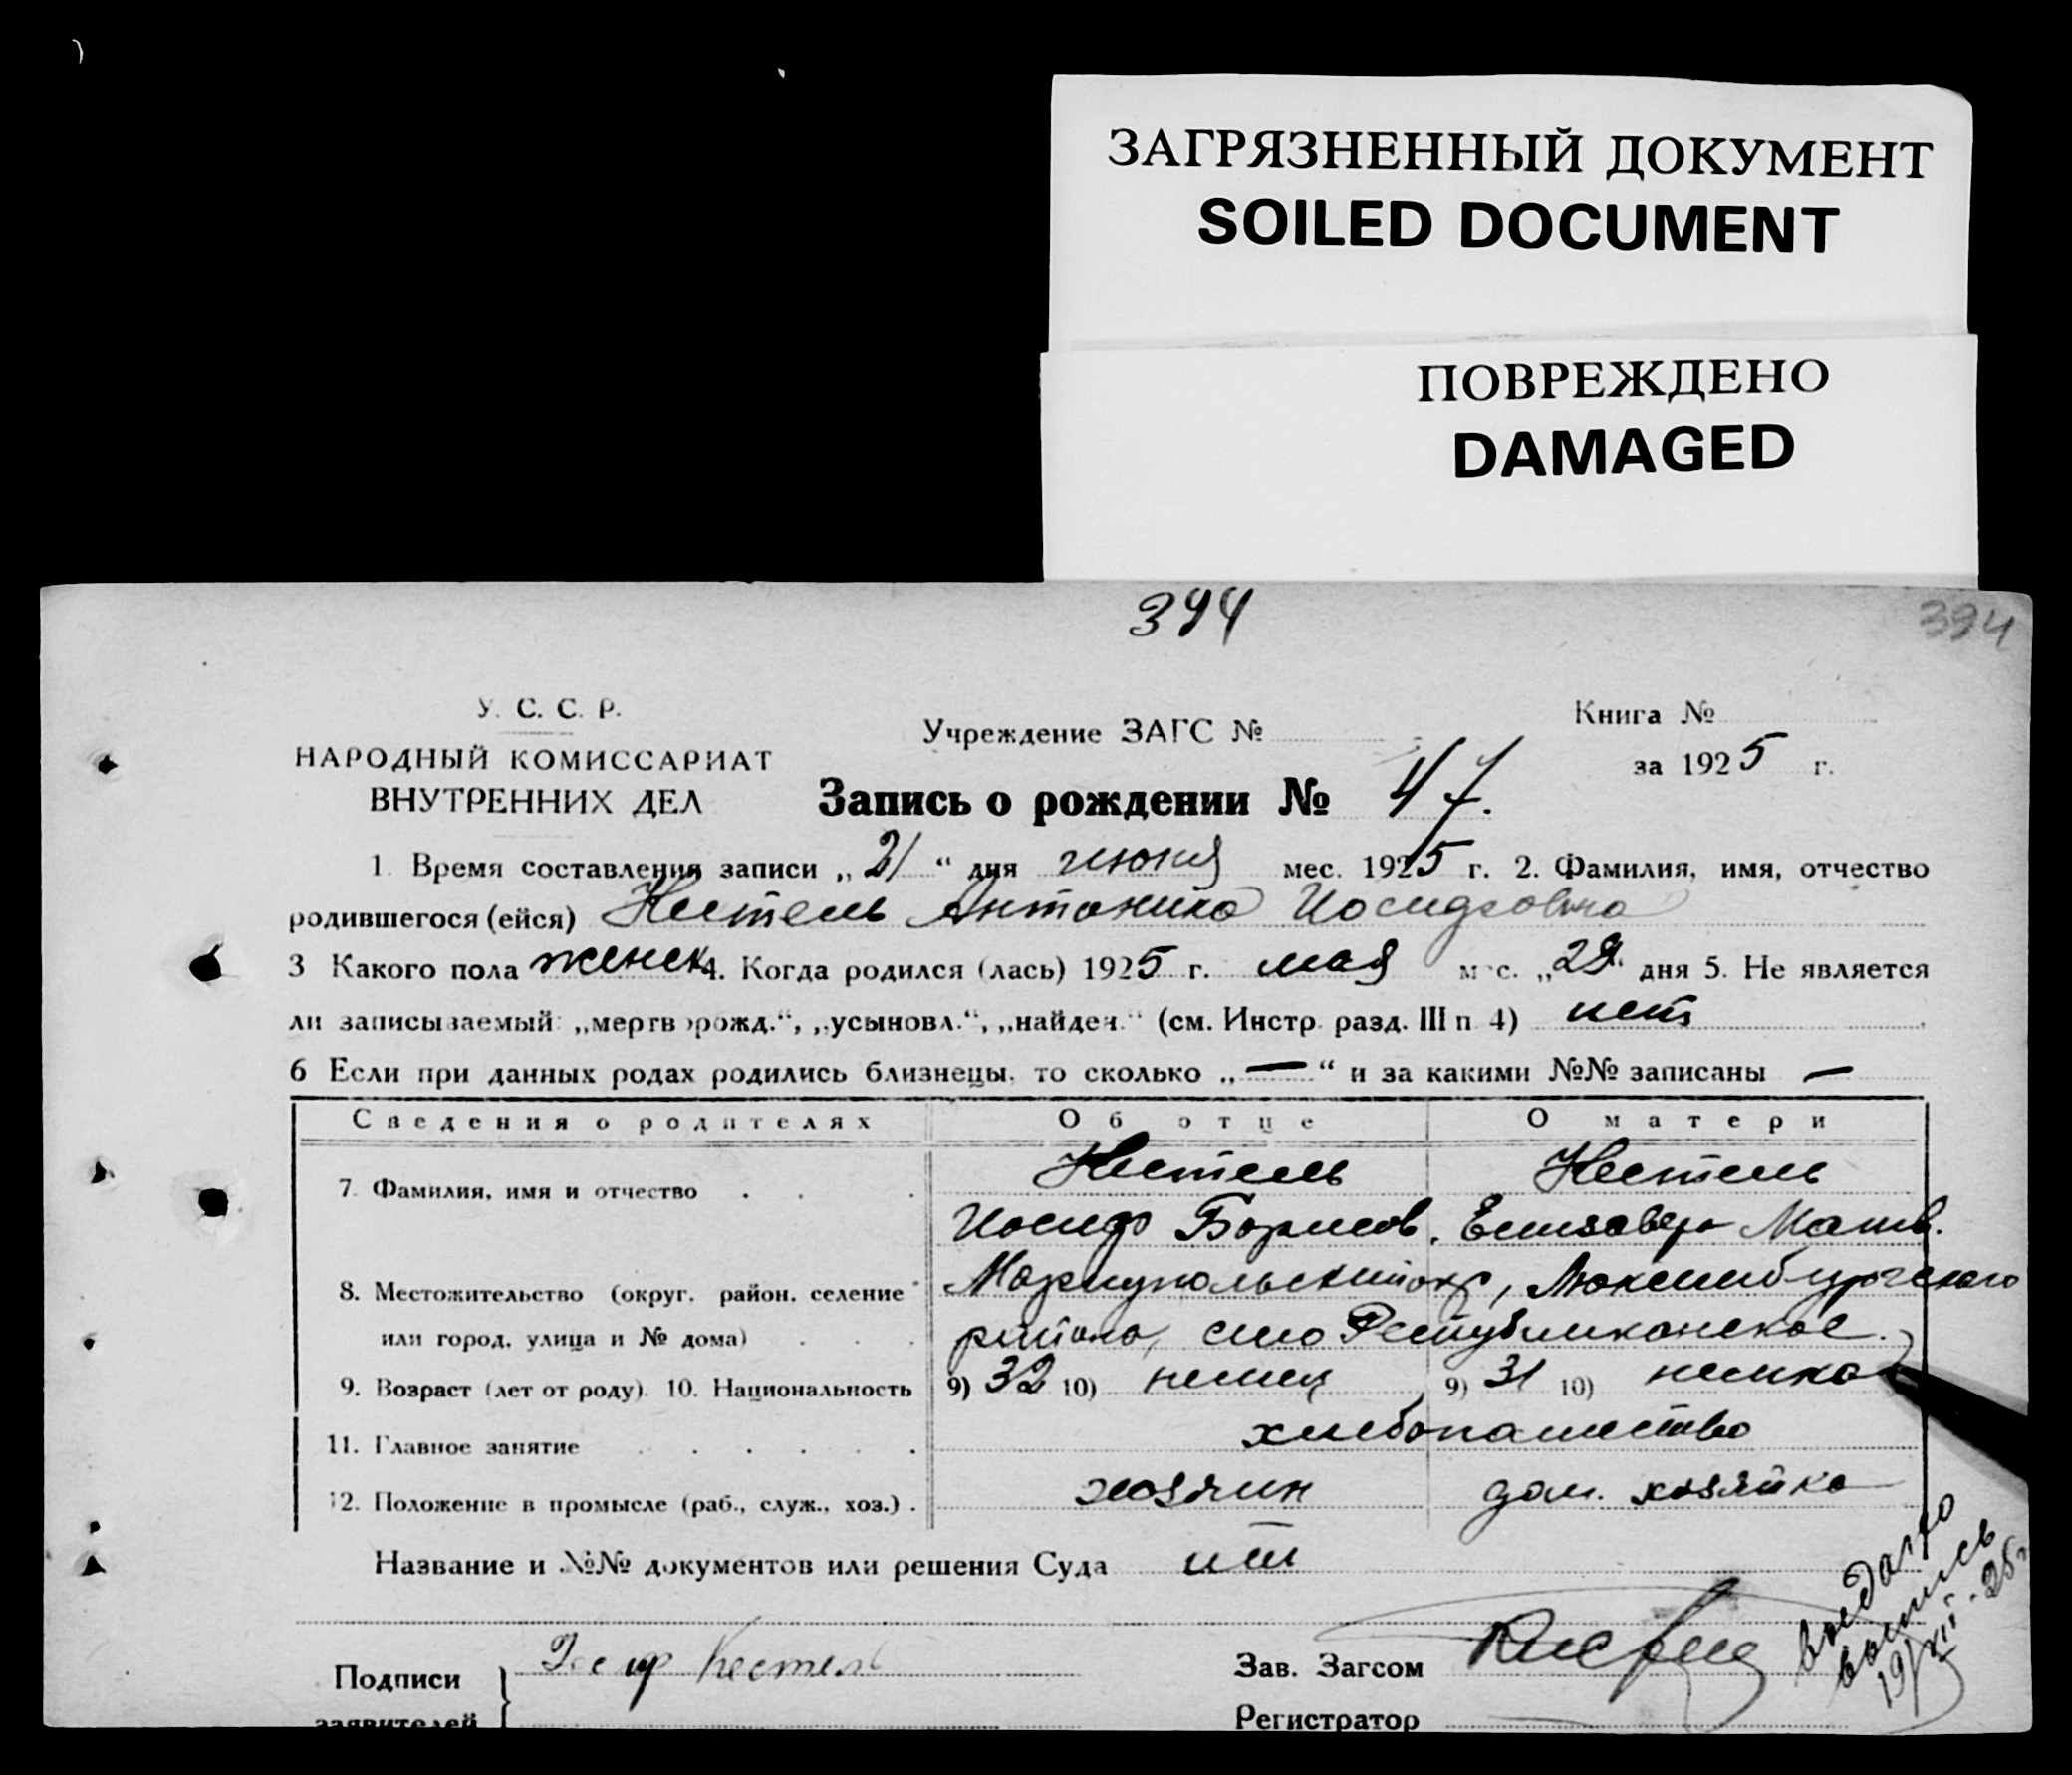 ЗАГРЯЗНЕННЫЙ ДОКУМЕНТ
SOILED DOCUMENT
ПОВРЕЖДЕНО
DAMAGED
394
394
У. С. С. Р.
НАРОДНЫЙ КОМИССАРИАТ
ВНУТРЕННИХ ДЕЛ
Учреждение ЗАГС №
Книга №
за 1925 г.
Запись о рождении № 47.
1. Время составления записи „21“ дня июня мес. 1925 г. 2. Фамилия, имя, отчество
родившегося (ейся) Кестель Антонина Иосифовна
3 Какого пола женск 4. Когда родился (лась) 1925 г. мая мес. „29“ дня 5. Не является
ли записываемый: „мертворожд.“, „усыновл.“, „найден.“ (см. Инстр. разд. III п 4) нет
6 Если при данных родах родились близнецы, то сколько „—“ и за какими №№ записаны —
Сведения о родителях Об отце О матери
7. Фамилия, имя и отчество Кестель Кестель
Иосиф Борисов. Елизавета Матв.
8. Местожительство (округ, район, селение Мариупольский окр, Люксембургского
или город, улица и № дома) района, село Республиканское.
9. Возраст (лет от роду). 10. Национальность 9) 32 10) немец 9) 31 10) немка
11. Главное занятие хлебопашество
12. Положение в промысле (раб., служ., хоз.) . хозяин дом. хозяйка
Название и №№ документов или решения Суда нет
Подписи Иосиф Кестель
заявителей
Зав. Загсом
Регистратор
выдано
выпись
19/XII-25г